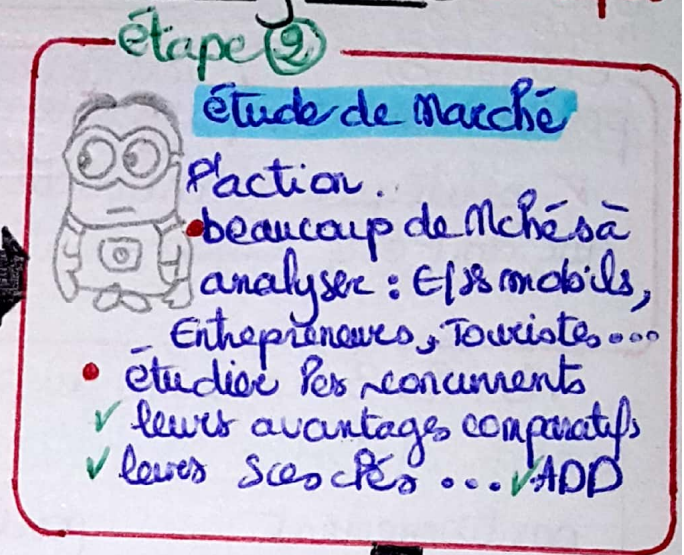 étape 2
étude de Marché
l'action.
beaucoup de Mchés à
analyser : E/ses mobils,
Entrepreneurs, Touristes...
étudier les concurrents
✓ leurs avantages comparatifs
✓ leurs Sces clés ... ✓ ADD